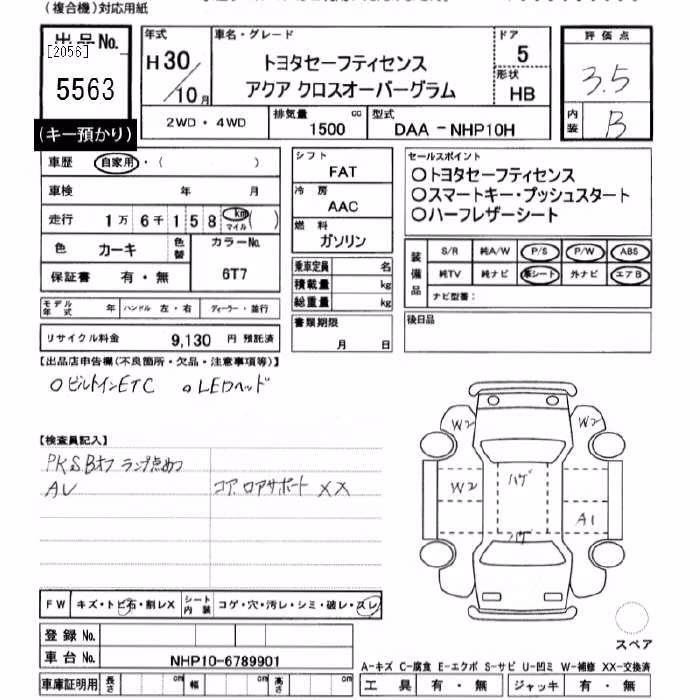 (複合機)対応用紙
出品No.
[2056]
5563
(キー預かり)
年式
H30/10月
車名・グレード
トヨタセーフティセンス
アクア クロスオーバーグラム
ドア
5
形状
HB
評価点
3.5
内装
B
2WD・4WD
排気量
1500
cc
型式
DAA-NHP10H
車歴
自家用・( )
車検 年 月
走行 1万 6千 1 5 8 km マイル ( )
色 カーキ
色替
カラーNo.
6T7
保証書 有・無
シフト
FAT
冷房
AAC
燃料
ガソリン
セールスポイント
○トヨタセーフティセンス
○スマートキー・プッシュスタート
○ハーフレザーシート
装備品
S/R 純A/W P/S P/W ABS
純TV 純ナビ 革シート 外ナビ エアB
ナビ型番:
乗車定員 名
積載量 kg
総重量 kg
モデル年式 年 ハンドル 左・右 ディーラー・並行
リサイクル料金 9,130 円 預託済
書類期限
月 日
後日品
【出品店申告欄(不良箇所・欠品・注意事項等)】
○ビルトインETC ○LEDヘッド
【検査員記入】
PKSBオフ ランプ点めつ
AV
コア.ロアサポート XX
W2
W2
W2
ハゲ
A1
ハゲ
FW キズ・トビ石・割レX
シート内装 コゲ・穴・汚レ・シミ・破レ・スレ
登録No.
車台No. NHP10-6789901
車庫証明用 長さ cm 幅 cm 高さ cm
スペア
A-キズ C-腐食 E-エクボ S-サビ U-凹ミ W-補修 XX-交換済
工具 有・無 ジャッキ 有・無